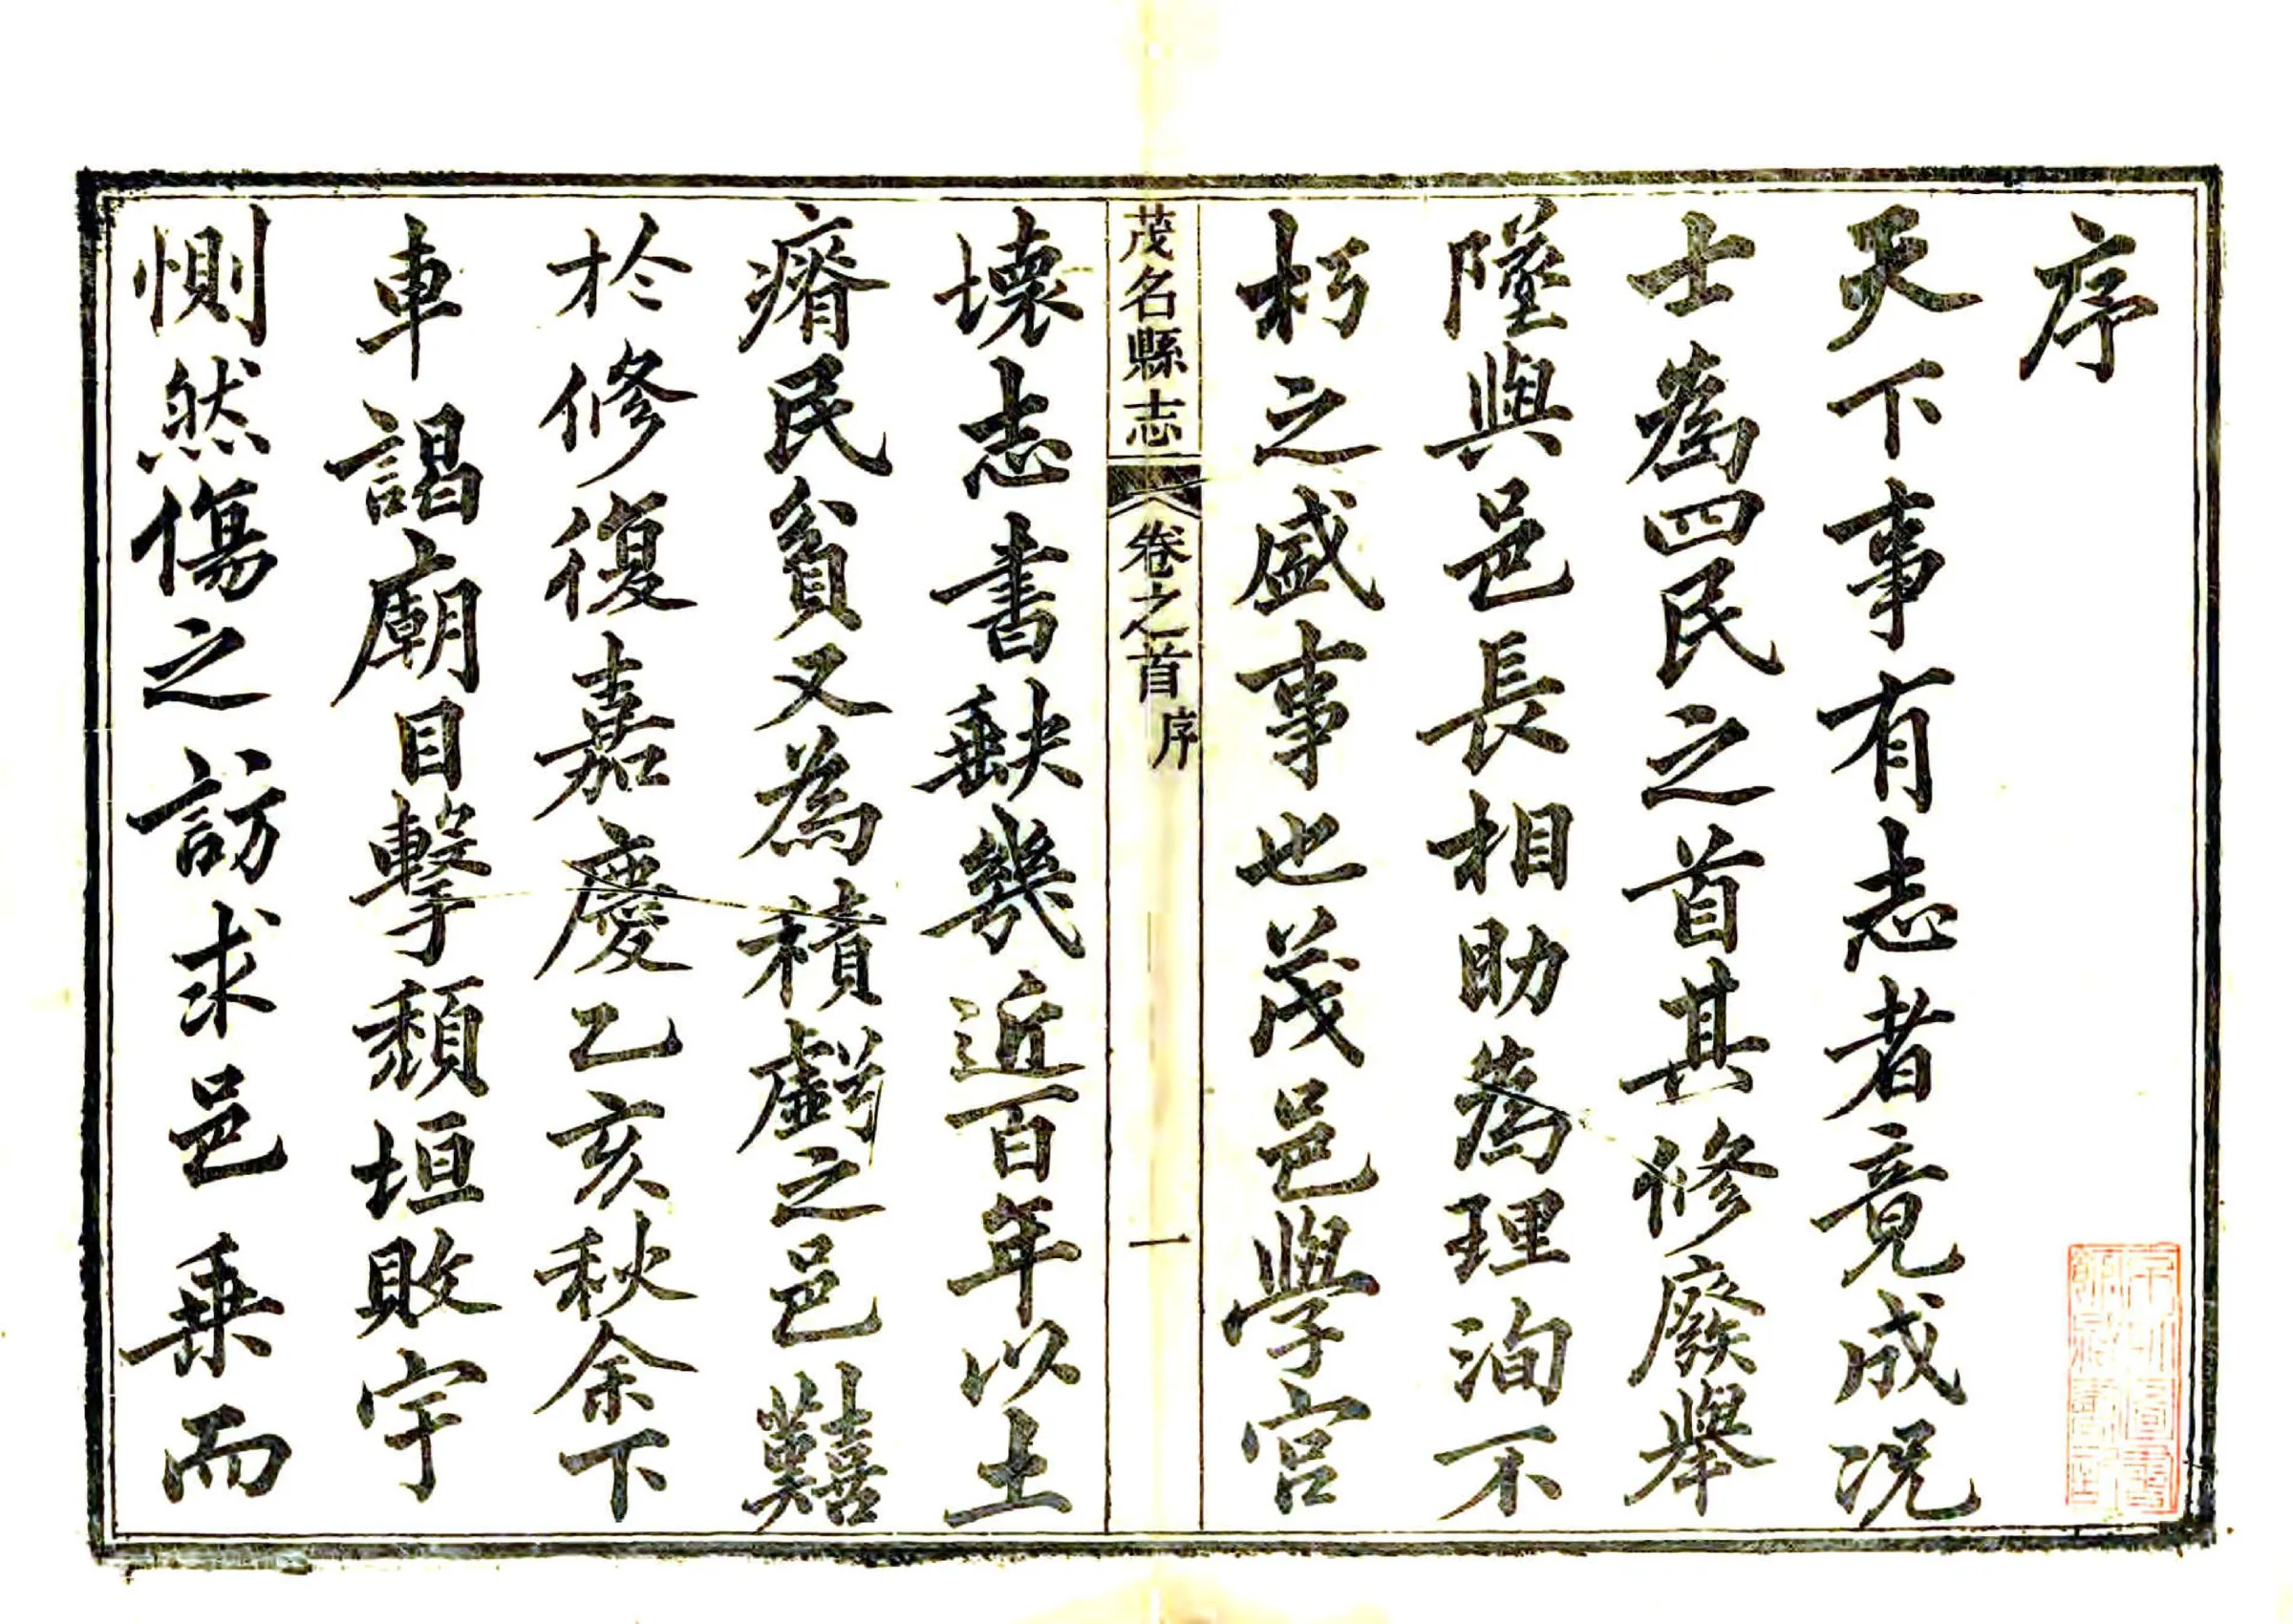 序
天下事有志者竟成况
士為四民之首其修廢舉
墜與邑長相助為理洵不
朽之盛事也茂邑學宮
茂名縣志
卷之首
序
一
壞志書缺幾近百年以土
瘠民貧又為積虧之邑囏
於修復嘉慶乙亥秋余下
車謁廟目擊頹垣敗宇
惻然傷之訪求邑乘而